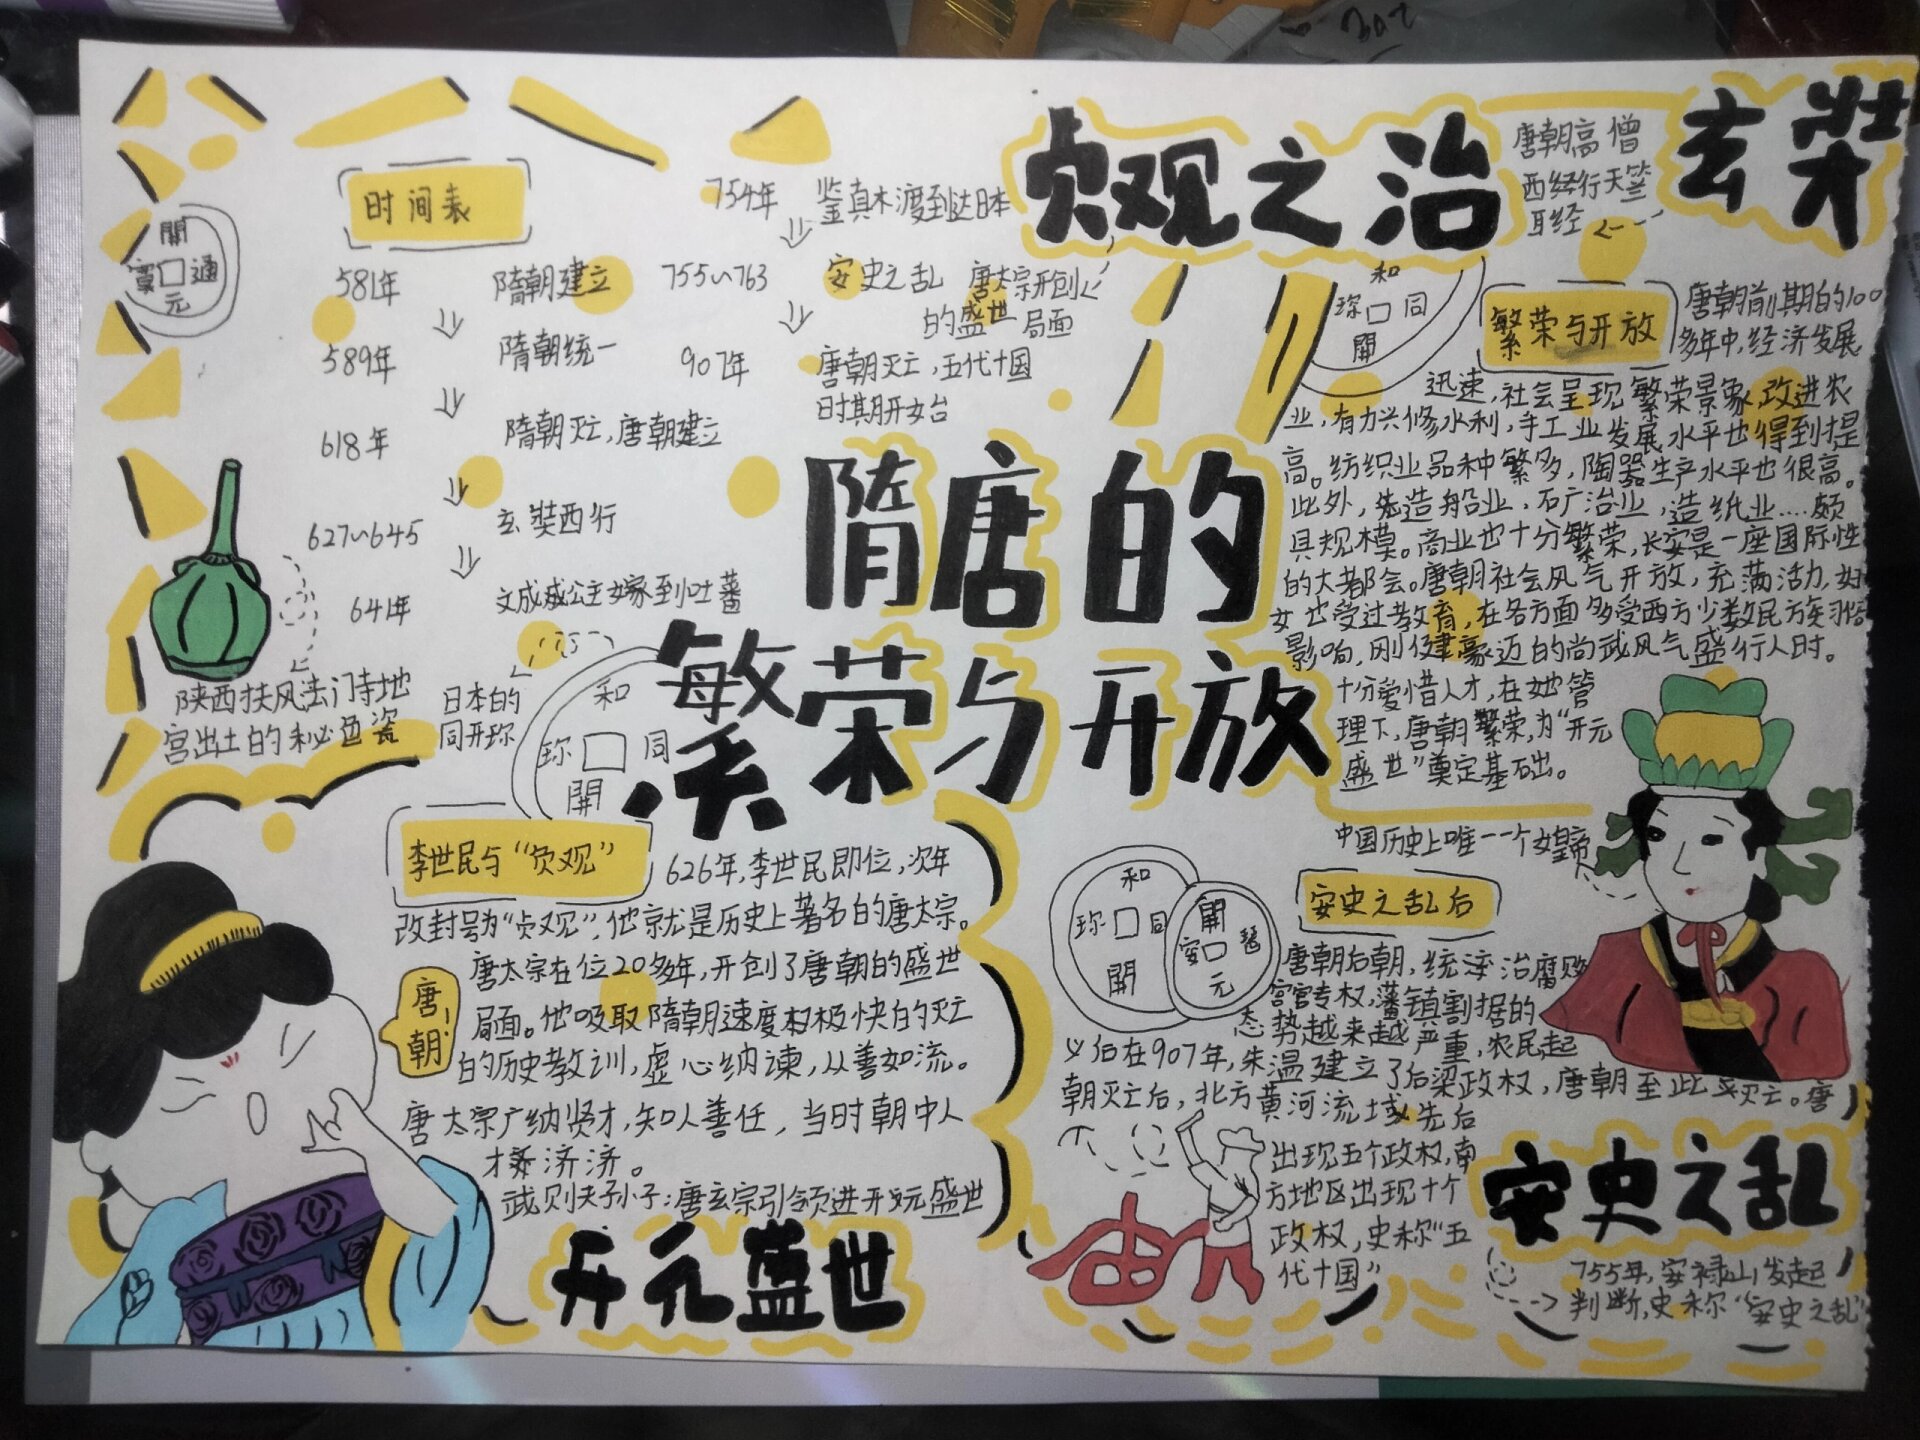 时间表
581年 隋朝建立
589年 隋朝统一
618年 隋朝灭亡,唐朝建立
627~645 玄奘西行
641年 文成公主嫁到吐蕃
754年 鉴真木渡到达日本
755~763 安史之乱
907年 唐朝灭亡,五代十国
时期开始
開
通
元
寳
贞观之治
唐太宗开创
的盛世局面
玄奘
唐朝高僧
西经行天竺
取经
和
同
開
珎
繁荣与开放
唐朝前期的100
多年中,经济发展
迅速,社会呈现繁荣景象,改进农
业,有力兴修水利,手工业发展水平也得到提
高。纺织业品种繁多,陶器生产水平也很高。
此外,造船业,矿冶业,造纸业....颇
具规模。商业也十分繁荣,长安是一座国际性
的大都会。唐朝社会风气开放,充满活力,妇
女也受过教育,在各方面多受西方少数民族习俗
影响,刚健豪迈的尚武风气盛行人时。
隋唐的
繁荣与开放
十分爱惜人才,在她管
理下,唐朝繁荣,为“开元
盛世”奠定基础。
中国历史上唯一一个女皇帝
陕西扶风法门寺地
宫出土的秘色瓷
日本的
同开珎
和
同
開
珎
李世民与“贞观”
626年,李世民即位,次年
改封号为“贞观”,他就是历史上著名的唐太宗。
唐太宗在位20多年,开创了唐朝的盛世
局面。他吸取隋朝速度极快的灭亡
的历史教训,虚心纳谏,从善如流。
唐太宗广纳贤才,知人善任,当时朝中人
才济济。
武则天孙子:唐玄宗引领进开元盛世
唐朝!
开元盛世
和
同
開
珎
開
元
安史之乱后
唐朝后期,统治腐败
宦官专权,藩镇割据的
态势越来越严重,农民起
义后在907年,朱温建立了后梁政权,唐朝至此灭亡。唐
朝灭亡后,北方黄河流域先后
出现五个政权,南
方地区出现十个
政权,史称“五
代十国”
安史之乱
755年,安禄山发起
判断,史称“安史之乱”